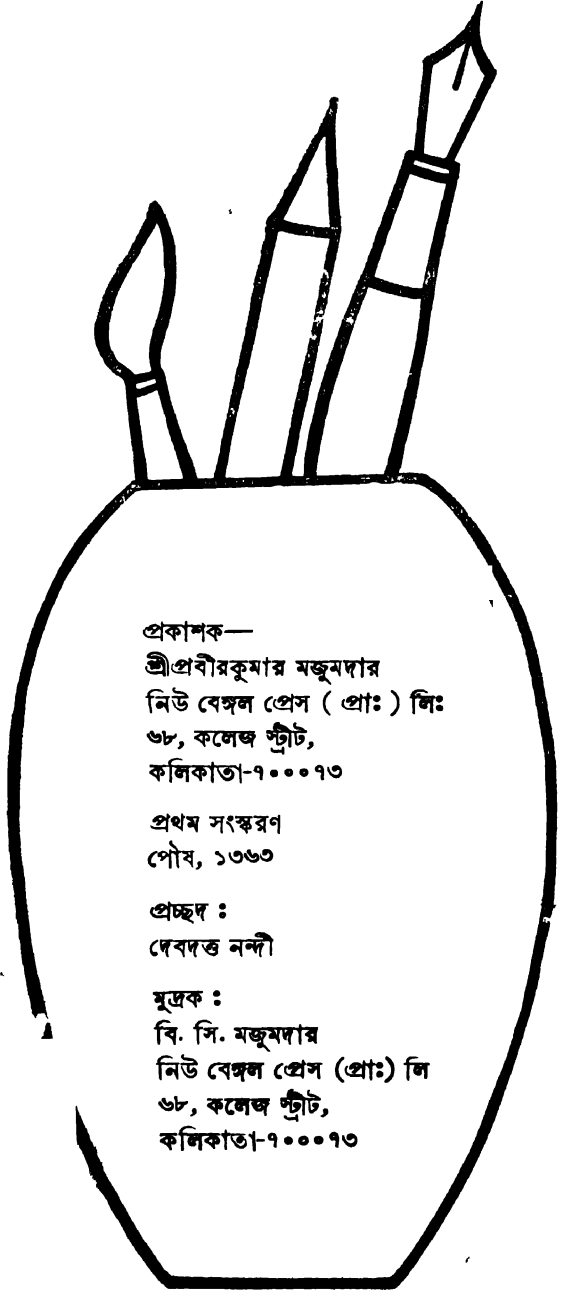 প্রকাশক—
শ্রীপ্রবীরকুমার মজুমদার
নিউ বেঙ্গল প্রেস ( প্রাঃ ) লিঃ
৬৮, কলেজ স্ট্রীট,
কলিকাতা-৭০০০৭৩
প্রথম সংস্করণ
পৌষ, ১৩৬৩
প্রচ্ছদ :
দেবদত্ত নন্দী
মুদ্রক :
বি. সি. মজুমদার
নিউ বেঙ্গল প্রেস (প্রাঃ) লি
৬৮, কলেজ স্ট্রীট,
কলিকাতা-৭০০০৭৩